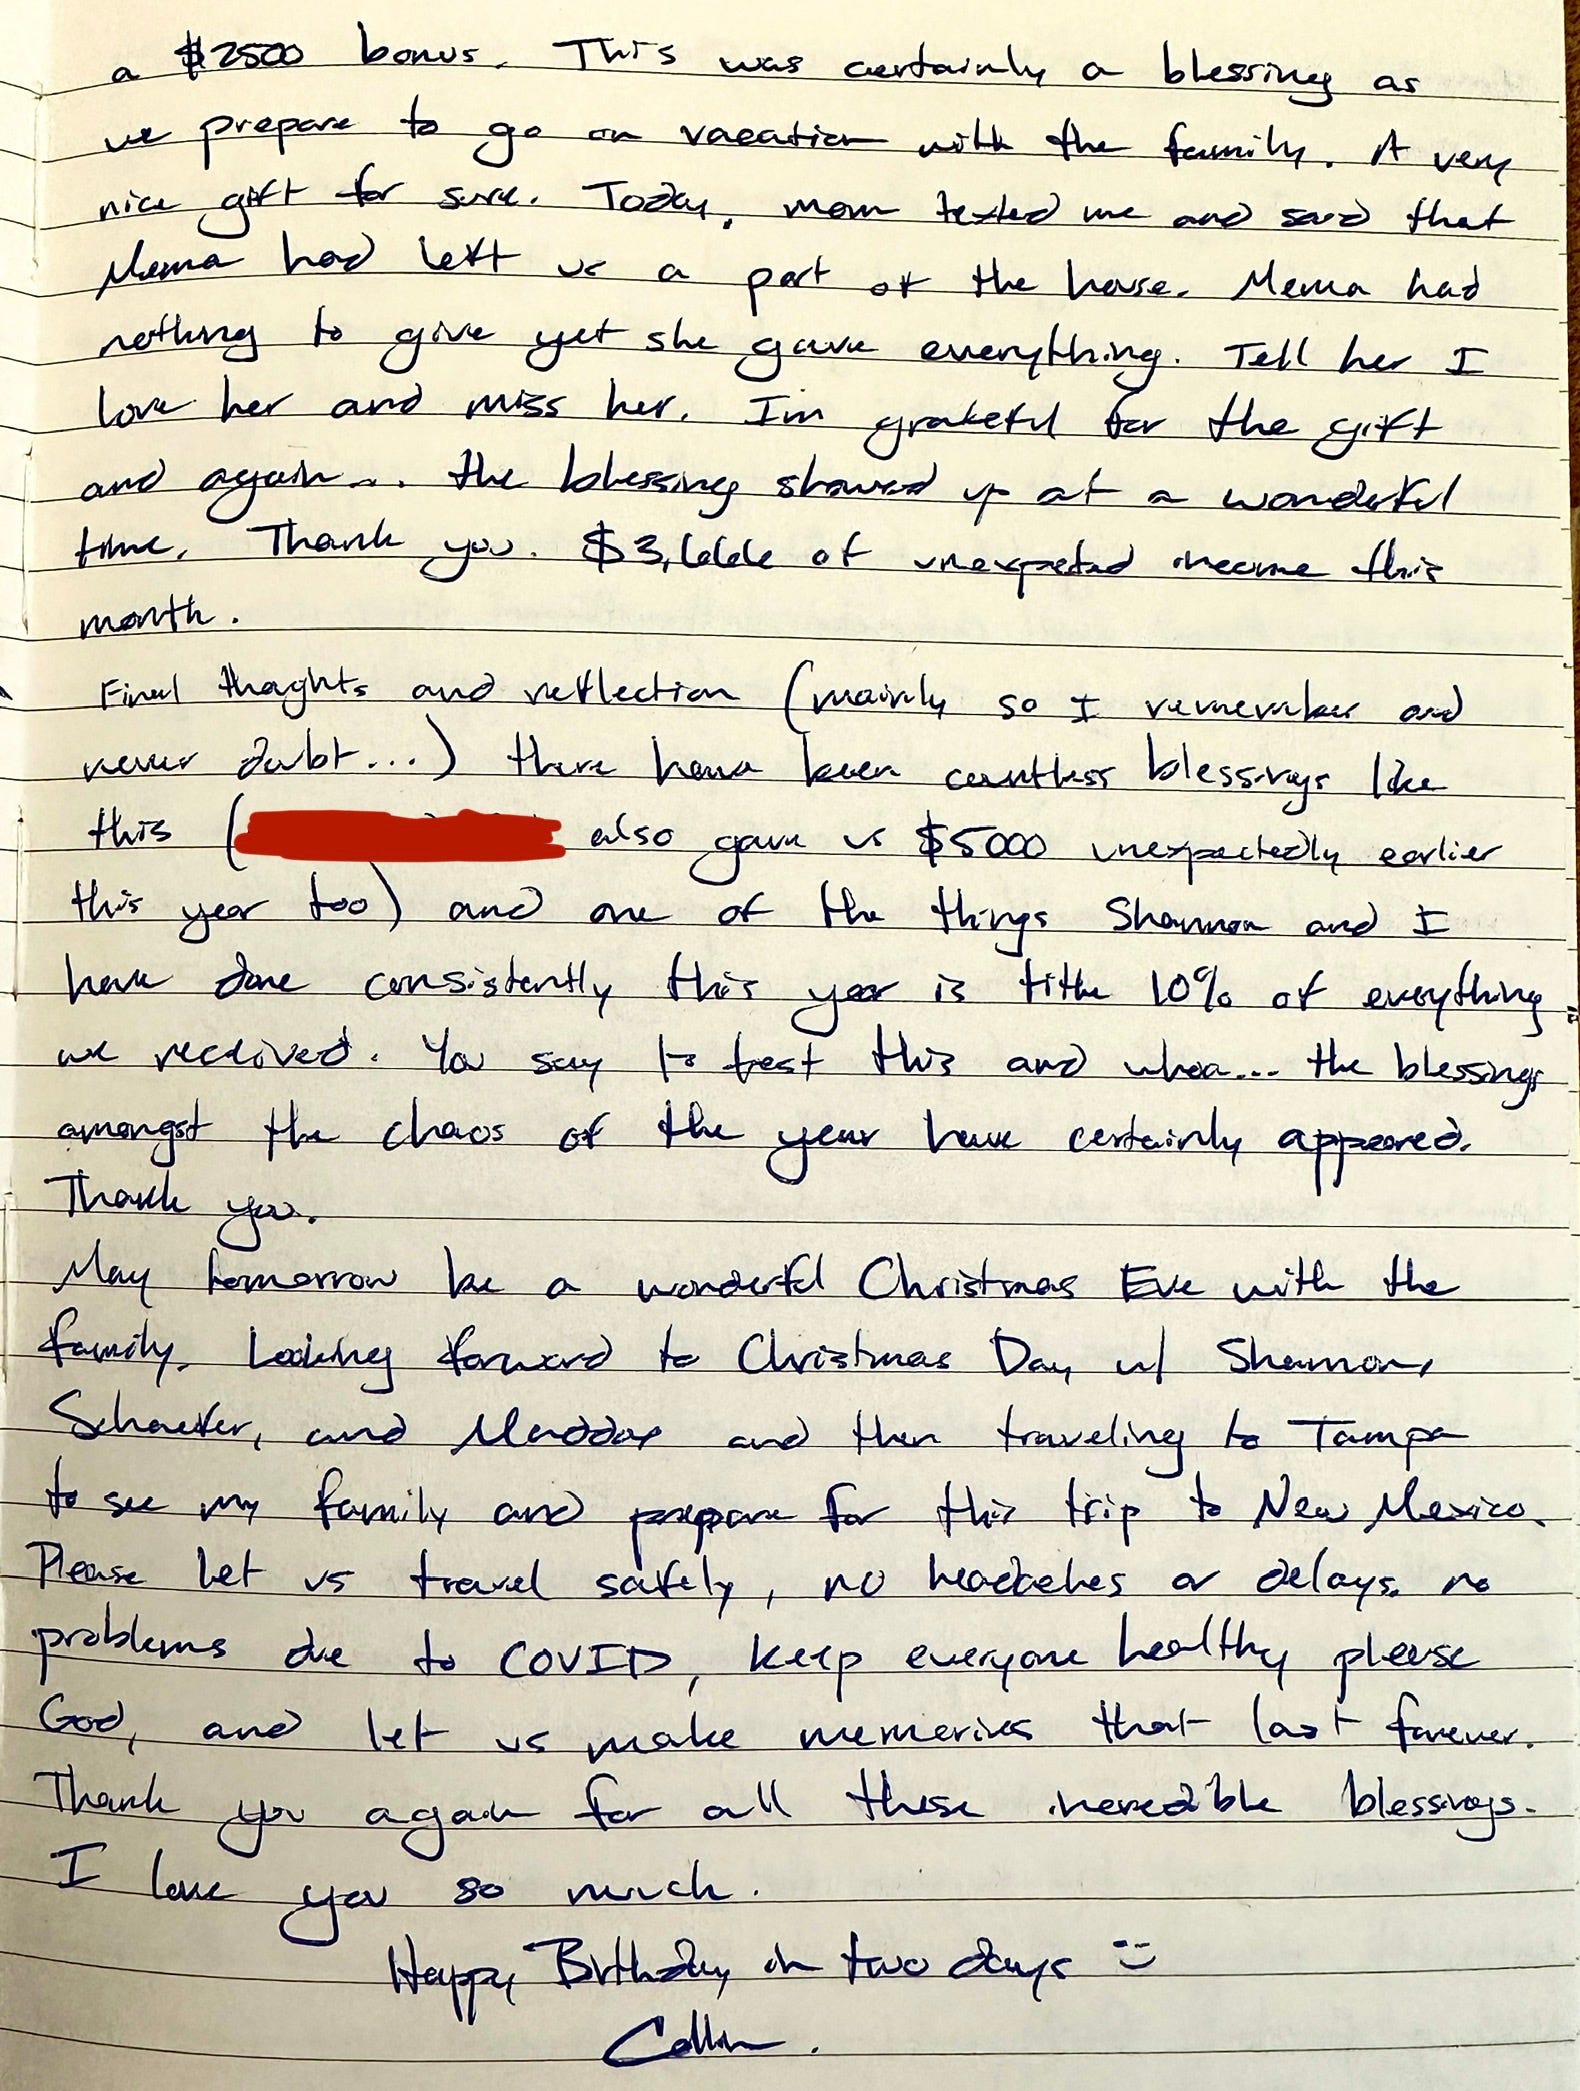 a $2500 bonus. This was certainly a blessing as
we prepare to go on vacation with the family. A very
nice gift for sure. Today, mom texted me and said that
Mema had left us a part of the house. Mema had
nothing to give yet she gave everything. Tell her I
love her and miss her. I'm grateful for the gift
and again... the blessing showed up at a wonderful
time. Thank you. $3,666 of unexpected income this
month.
Final thoughts and reflection (mainly so I remember and
never doubt...) there have been countless blessings like
this ( also gave us $5000 unexpectedly earlier
this year too) and one of the things Shannon and I
have done consistently this year is tithe 10% of everything
we received. You say to test this and whoa... the blessings
amongst the chaos of the year have certainly appeared.
Thank you.
May tomorrow be a wonderful Christmas Eve with the
family. Looking forward to Christmas Day w/ Shannon,
Schaefer, and Maddox and then traveling to Tampa
to see my family and prepare for this trip to New Mexico.
Please let us travel safely, no headaches or delays, no
problems due to COVID, keep everyone healthy please
God, and let us make memories that last forever.
Thank you again for all these incredible blessings.
I love you so much.
Happy Birthday in two days :)
Collin.